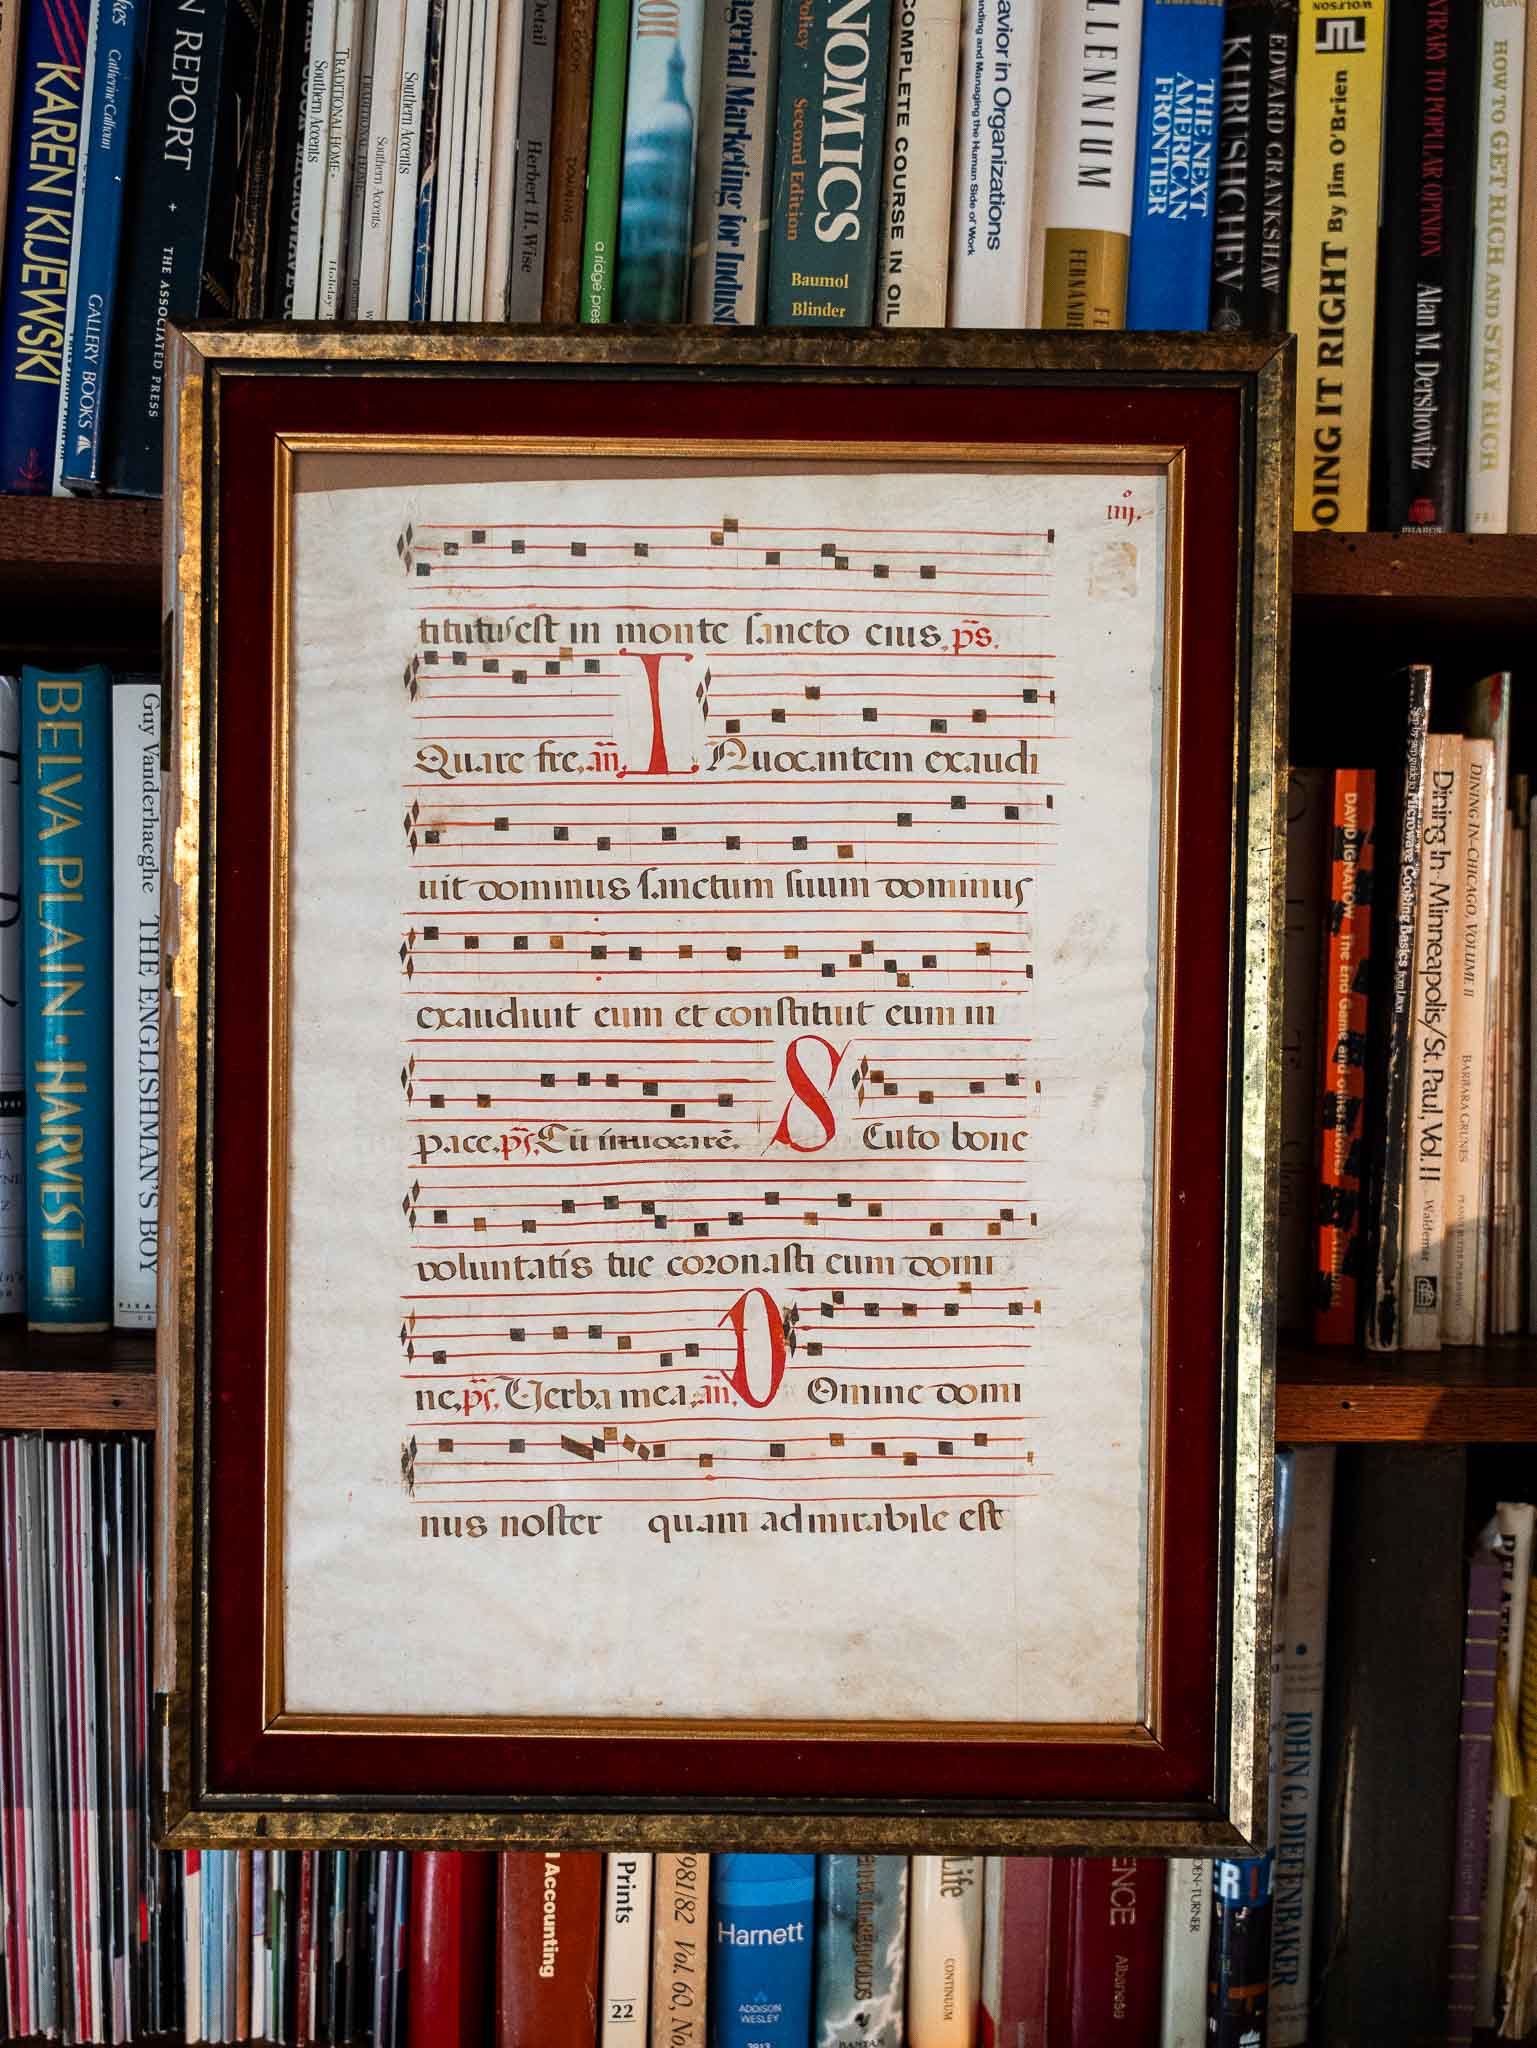 KAREN KIJEWSKI
Catherine Calhoun
GALLERY BOOKS
N REPORT + THE ASSOCIATED PRESS
TRADITIONAL HOME
Southern Accents
TRADITIONAL HOME
Southern Accents
Southern Accents
Holiday
Detail Herbert H. Wise
a ridge pres
agerial Marketing for Indust
NOMICS
Policy · Second Edition
Baumol
Blinder
COMPLETE COURSE IN OIL
avior in Organizations
anding and Managing the Human Side of Work
LLENNIUM
THE NEXT
AMERICAN
FRONTIER
EDWARD CRANKSHAW
KHRUSHCHEV
WOLFSON
DOING IT RIGHT By Jim O'Brien
TRARY TO POPULAR OPINION Alan M. Dershowitz
PHAROS
HOW TO GET RICH AND STAY RICH
iiij.
titutus est in monte sancto eius. ps.
Quare fre. an. I Nuocantem exaudi
uit dominus sanctum suum dominus
exaudiuit eum et constituit eum in
pace. ps. Cu inuocare. S Cuto bone
voluntatis tue coronasti eum domi
ne. ps. Verba mea. an. D Omine domi
nus noster quam admirabile est
BELVA PLAIN · HARVEST
Guy Vanderhaeghe THE ENGLISHMAN'S BOY
DAVID IGNATOW The End Game and other stories
Microwave Cooking Basics
Dining In–Minneapolis/St. Paul, Vol. II
DINING IN–CHICAGO, VOLUME II BARBARA GRUNES
JOHN G. DIEFENBAKER
Accounting
Prints 22
1981/82 Vol. 60, No.
Harnett
ADDISON
WESLEY
Life CONTINUUM
ENCE Albanese
DEN-TURNER
BANTAM